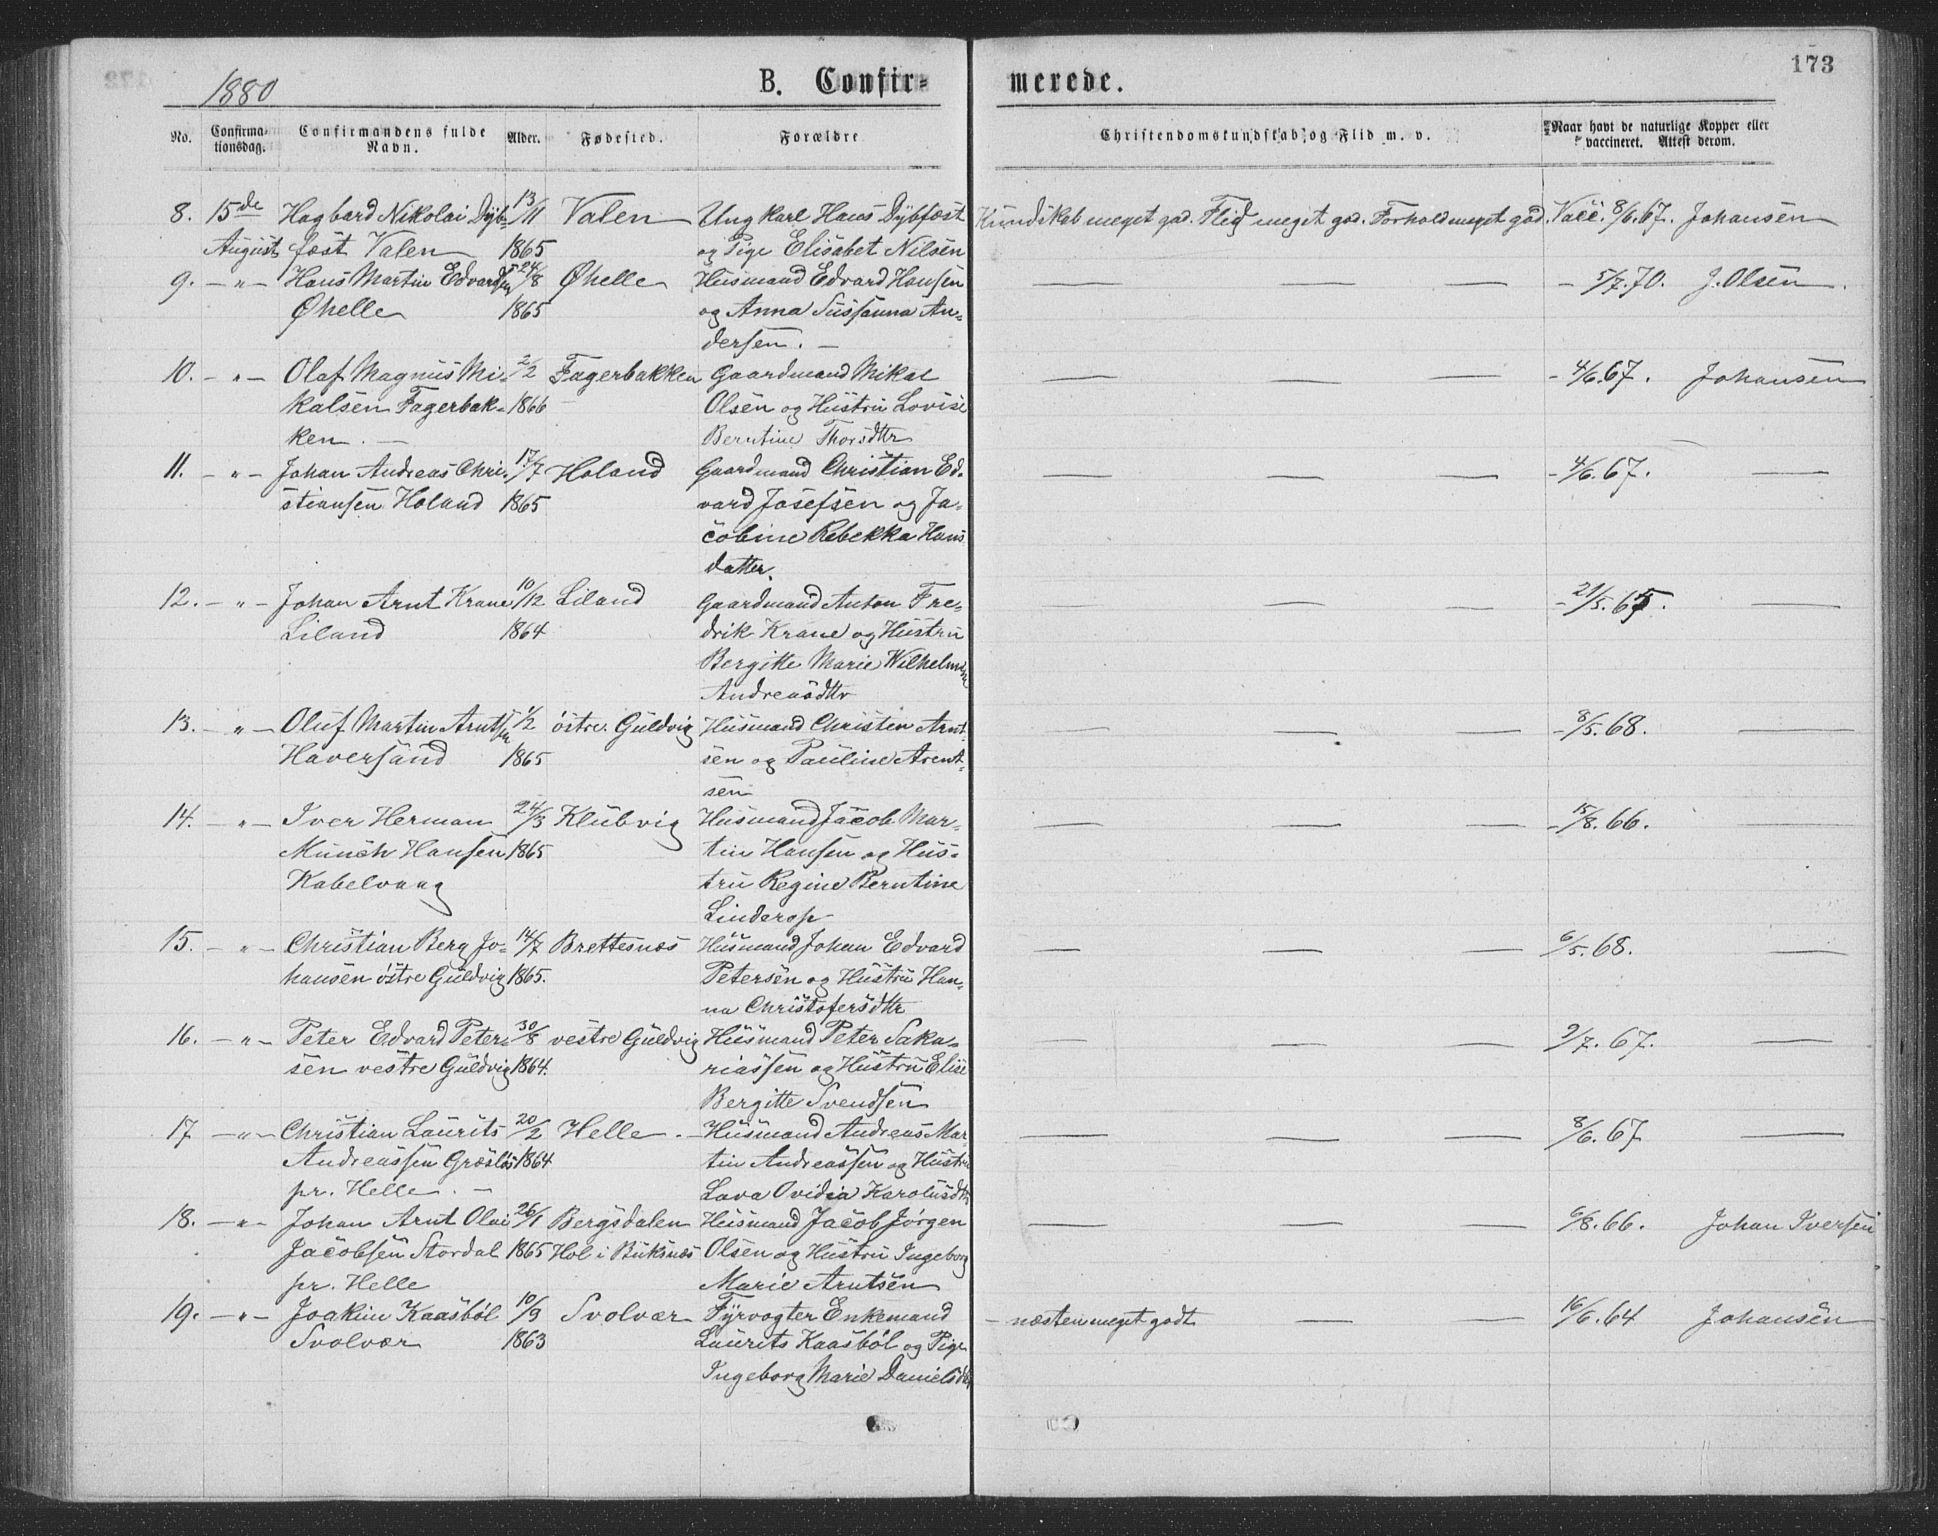 173
1880
B. Confir-
merede.
No. Confirma-tionsdag. Confirmandens fulde Navn. Alder. Fødested. Forældre Christendomskundskab og Flid m. v. Naar havt de naturlige Kopper eller vaccineret. Attest derom.
8. 15de Hagbard Nikolai Dyb- 13/11 Valen Ungkarl Hans Dybfæst Kundskab meget god. Flid meget god. Forhold meget god. Vacc. 8/6.67. Johansen
August fæst Valen 1865 og Pige Elisabet Nilsen
9. -"- Hans Martin Edvardsen 24/8 Øhelle Husmand Edvard Hansen — — — - 5/7.70. J. Olsen.
Øhelle 1865 og Anna Sussanna An-
dersen. -
10. -"- Olaf Magnus Mi- 2/2 Fagerbakken Gaardmand Mikal — — — - 4/6.67. Johansen
kalsen Fagerbak- 1866 Olsen og Hustru Lovise
ken. - Berntine Thorsdtr
11. -"- Johan Andreas Chri- 17/7 Holand Gaardmand Christian Ed- — — — - 4/6.67. —
stiansen Holand 1865 vard Josefsen og Ja-
cobine Rebekka Hans
datter.
12. -"- Johan Arnt Krane 10/12 Liland Gaardmand Anton Fre- — — — - 21/5.65. —
Liland 1864 drik Krane og Hustru
Bergitte Marie Wilhelmine
Andreasdtr
13. -"- Oluf Martin Arntsen 1/2 östre Guldvig Husmand Christen Arnt- — — — - 8/5.68. —
Haversand 1865 sen og Pauline Arent-
sen
14. -"- Iver Herman 24/3 Klubvig Husmand Jacob Mar- — — — - 15/8.66. —
Münch Hansen 1865 tin Hansen og Hus-
Kabelvaag tru Regine Berntine
15. -"- Christian Berg Jo- 14/7 Brettesnæs Husmand Johan Edvard — — — 6/5.68. —
hansen östre Guldvig 1865. Petersen og Hustru Han-
na Christofersdtr
16. -"- Peter Edvard Peter- 30/8 vestre Guldvig Husmand Peter Saka- — — — 2/7.67. —
sen vestre Guldvig 1864. riassen og Hustru Elise
Bergitte Svendsen
17 -"- Christian Laurits 20/2 Helle. - Husmand Andreas Mar- — — — 8/6.67 —
Andreassen Græslös 1864 tin Andreassen og Hustru
pr. Helle. - Lava Ovidia Karolusdtr
18. -"- Johan Arnt Olai 26/1 Bergsdalen Husmand Jacob Jørgen — — — 6/8.66. Johan Iversen
Jacobsen Stordal 1865 Hol i Buksnæs Olsen og Hustru Ingeborg
pr. Helle Marie Arntsen
19. -"- Joakim Kaasböl 10/9 Svolvær Fyrvogter Enkemand - næsten meget godt — — 16/6.64 Johansen
Svolvær 1863 Laurits Kaasböl og Pige
Ingeborg Marie Danielsdtr